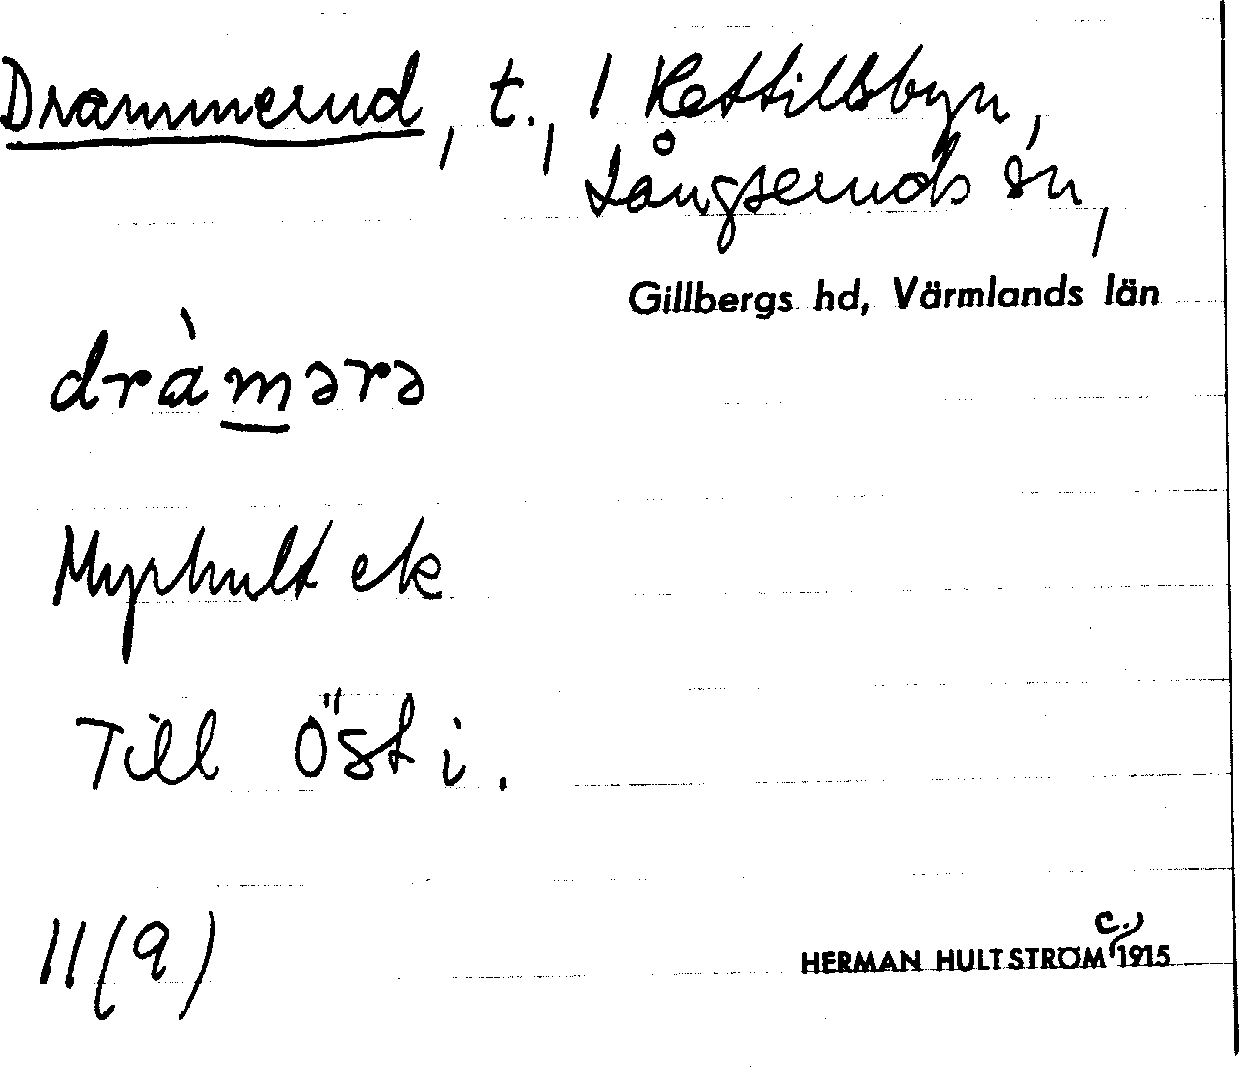 Drammerud, t., 1 Kettilsbyn,
Långseruds sn,
Gillbergs hd, Värmlands län
dràmərə
Myrhult ek
Till Öst i.
11(9)
HERMAN HULTSTRÖM c. 1915